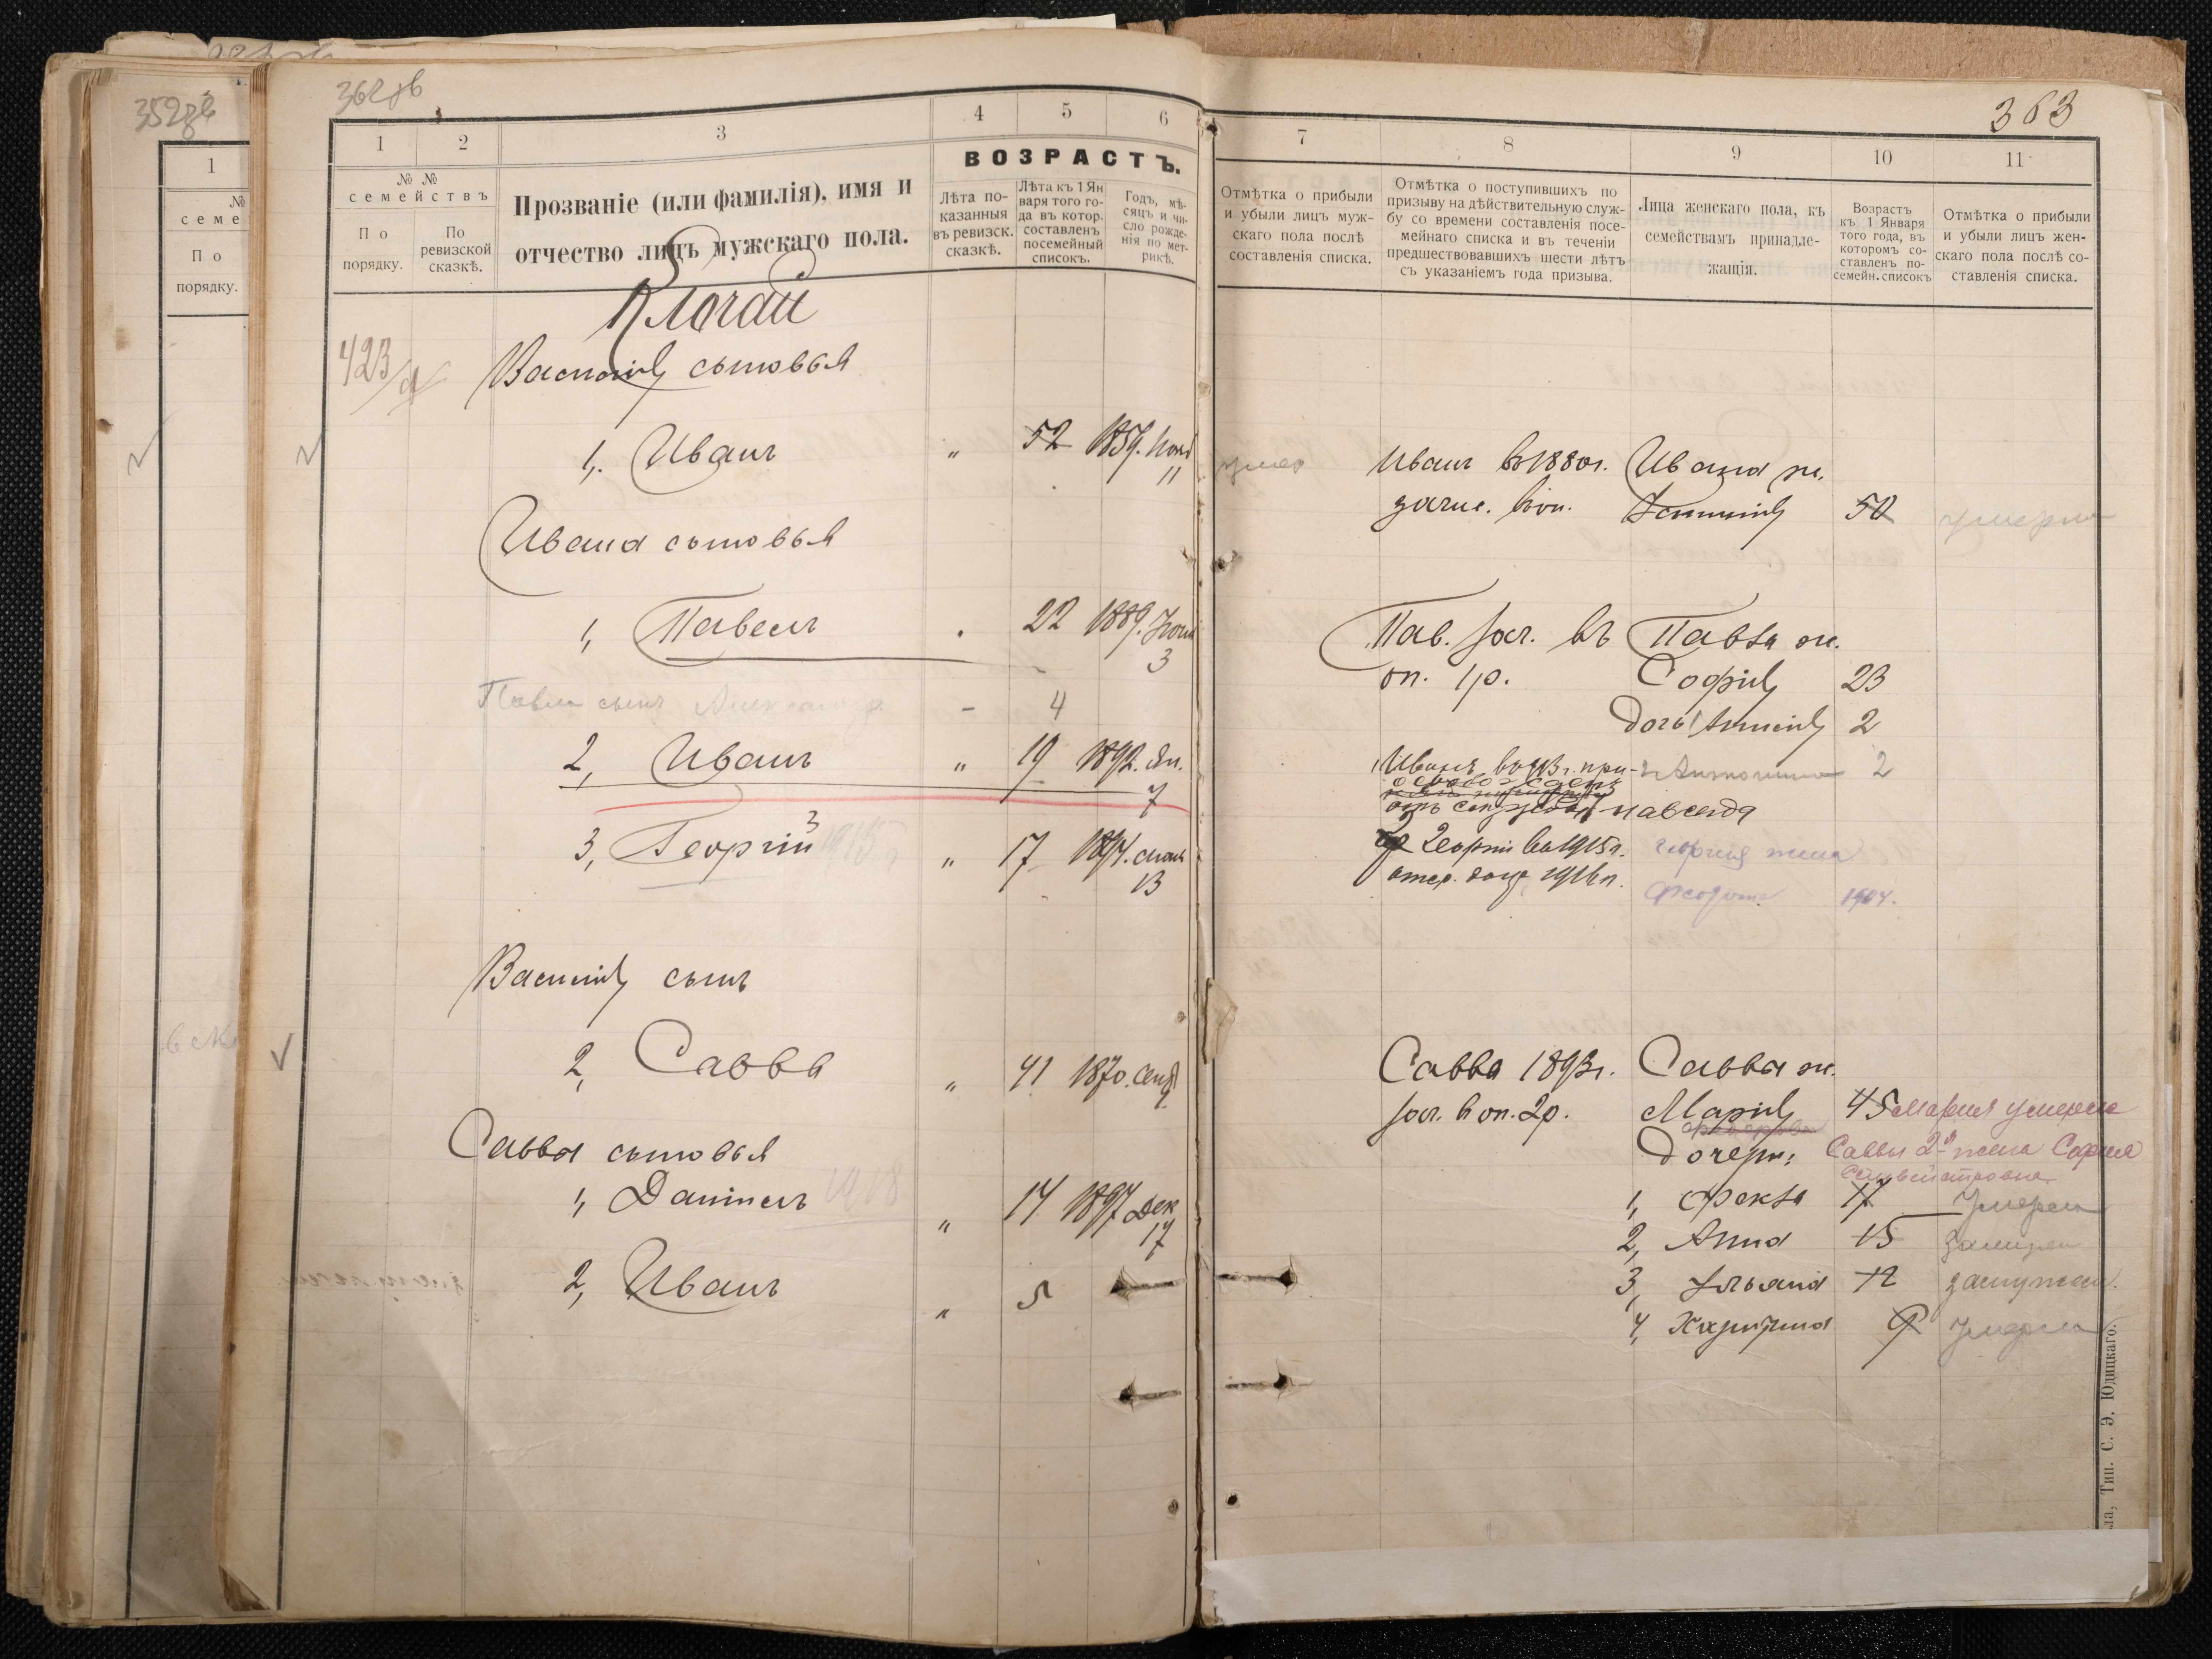 352зв
1
№
семе
По
порядку.
362зв
1
2
3
4
5
6
№ №
семействъ
По
порядку.
По
ревизской
сказкѣ.
Прозваніе (или фамилія), имя и
отчество лицъ мужскаго пола.
ВОЗРАСТЪ.
Лѣта по-
казанныя
въ ревизск.
сказкѣ.
Лѣта къ 1 Ян
варя того го-
да въ котор.
составленъ
посемейный
списокъ.
Годъ, мѣ-
сяцъ и чи-
сло рожде-
нія по мет-
рикѣ.
Клочай
423/
Василія сыновья
1, Иванъ " 52 1859.
11
Ивана сыновья
1, Павелъ 22 1889.
3
Павла сынъ Александр - 4
2, Иванъ " 19 1892. Ян.
7
3, Георгій 3 1915 " 17 1894.
13
Василія сынъ
2, Савва " 41 1870. Сен
Саввы сыновья
1, Даніилъ 1918 " 14 1897 Дек
17
2, Иванъ " 5
363
7
8
9
10
11
Отмѣтка о прибыли
и убыли лицъ муж-
скаго пола послѣ
составленія списка.
Отмѣтка о поступившихъ по
призыву на дѣйствительную служ-
бу со времени составленія посе-
мейнаго списка и въ теченіи
предшествовавшихъ шести лѣтъ
съ указаніемъ года призыва.
Лица женскаго пола, къ
семействамъ принадле-
жащія.
Возрастъ
къ 1 Января
того года, въ
которомъ со-
ставленъ по-
семейн. списокъ
Отмѣтка о прибыли
и убыли лицъ жен-
скаго пола послѣ со-
ставленія списка.
умер Иванъ въ 1880г. Ивана ж.
зачис. въ оп. 50 умерла
Пав. зач. въ Павла ж.
оп. 1р. Софія 23
дочь 2
Иванъ въ 1913 г. при- 2 Антонина 2
отъ службы навсегда
Георгій въ 1915г. Георгія жена
отср. до 1916г. Федота 1904.
Савва 1893г. Саввы ж.
зач. въ оп. 2р. Марія 45 Мария умерла
дочери: Саввы 2-я жена София
Сильвестровна
1, Фекла 17 Умерла
2, Анна 15 замужем
3, Ульяна 12 замужем
4, Харитина 9 Умерла
ла, Тип. С. Э. Юдицкаго.